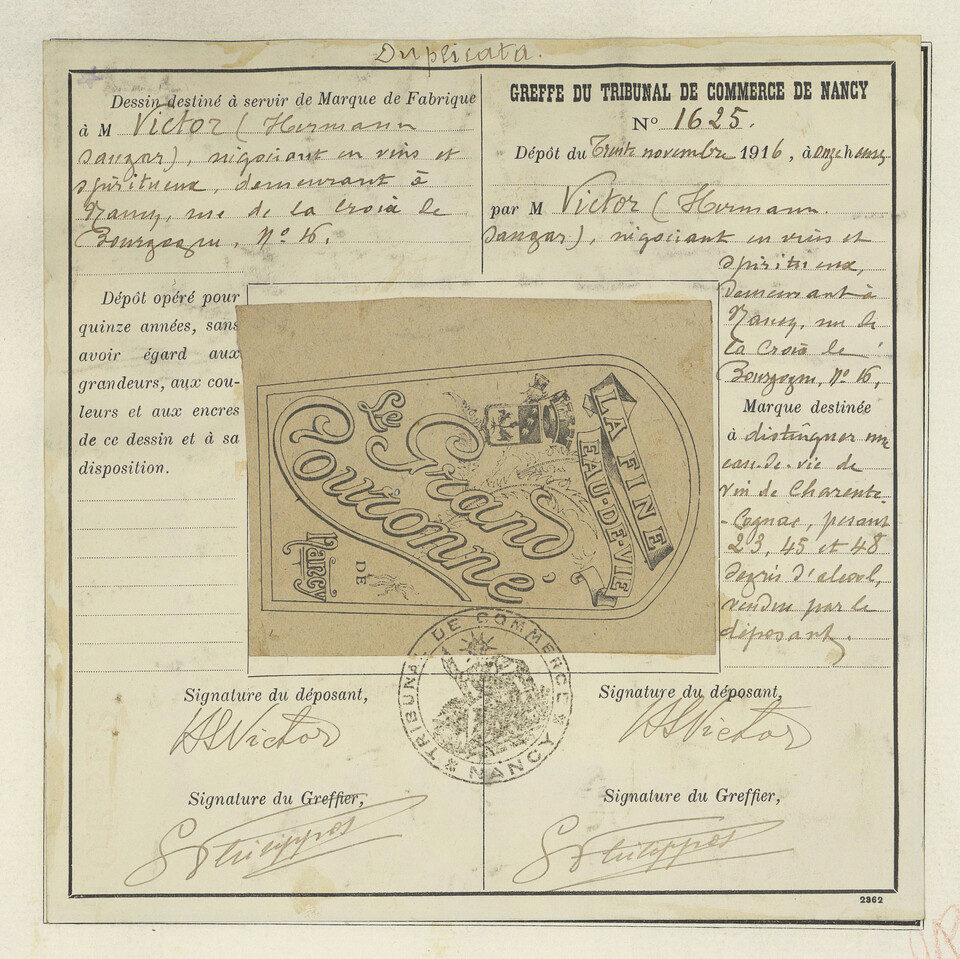 Duplicata.
Dessin destiné à servir de Marque de Fabrique
à M Victor (Hermann
Sangar), négociant en vins et
spiritueux, demeurant à
Nancy, rue de la Croix de
Bourgogne, N° 16.
Dépôt opéré pour
quinze années, sans
avoir égard aux
grandeurs, aux cou-
leurs et aux encres
de ce dessin et à sa
disposition.
GREFFE DU TRIBUNAL DE COMMERCE DE NANCY
N° 1625.
Dépôt du Trente novembre 1916, à onze heures
par M Victor (Hermann
Sangar), négociant en vins et
spiritueux,
demeurant à
Nancy, rue de
la Croix de
Bourgogne, N° 16,
Marque destinée
à distinguer une
eau-de-vie de
vin de Charente
-Cognac, pesant
23, 45 et 48
degrés d'alcool,
vendue par le
déposant.
LA FINE
EAU-DE-VIE
Le
Grand
Couronné
DE
Nancy
TRIBUNAL DE COMMERCE
NANCY
Signature du déposant,
HSVictor
Signature du déposant,
HSVictor
Signature du Greffier,
Philippot
Signature du Greffier,
Philippot
2362